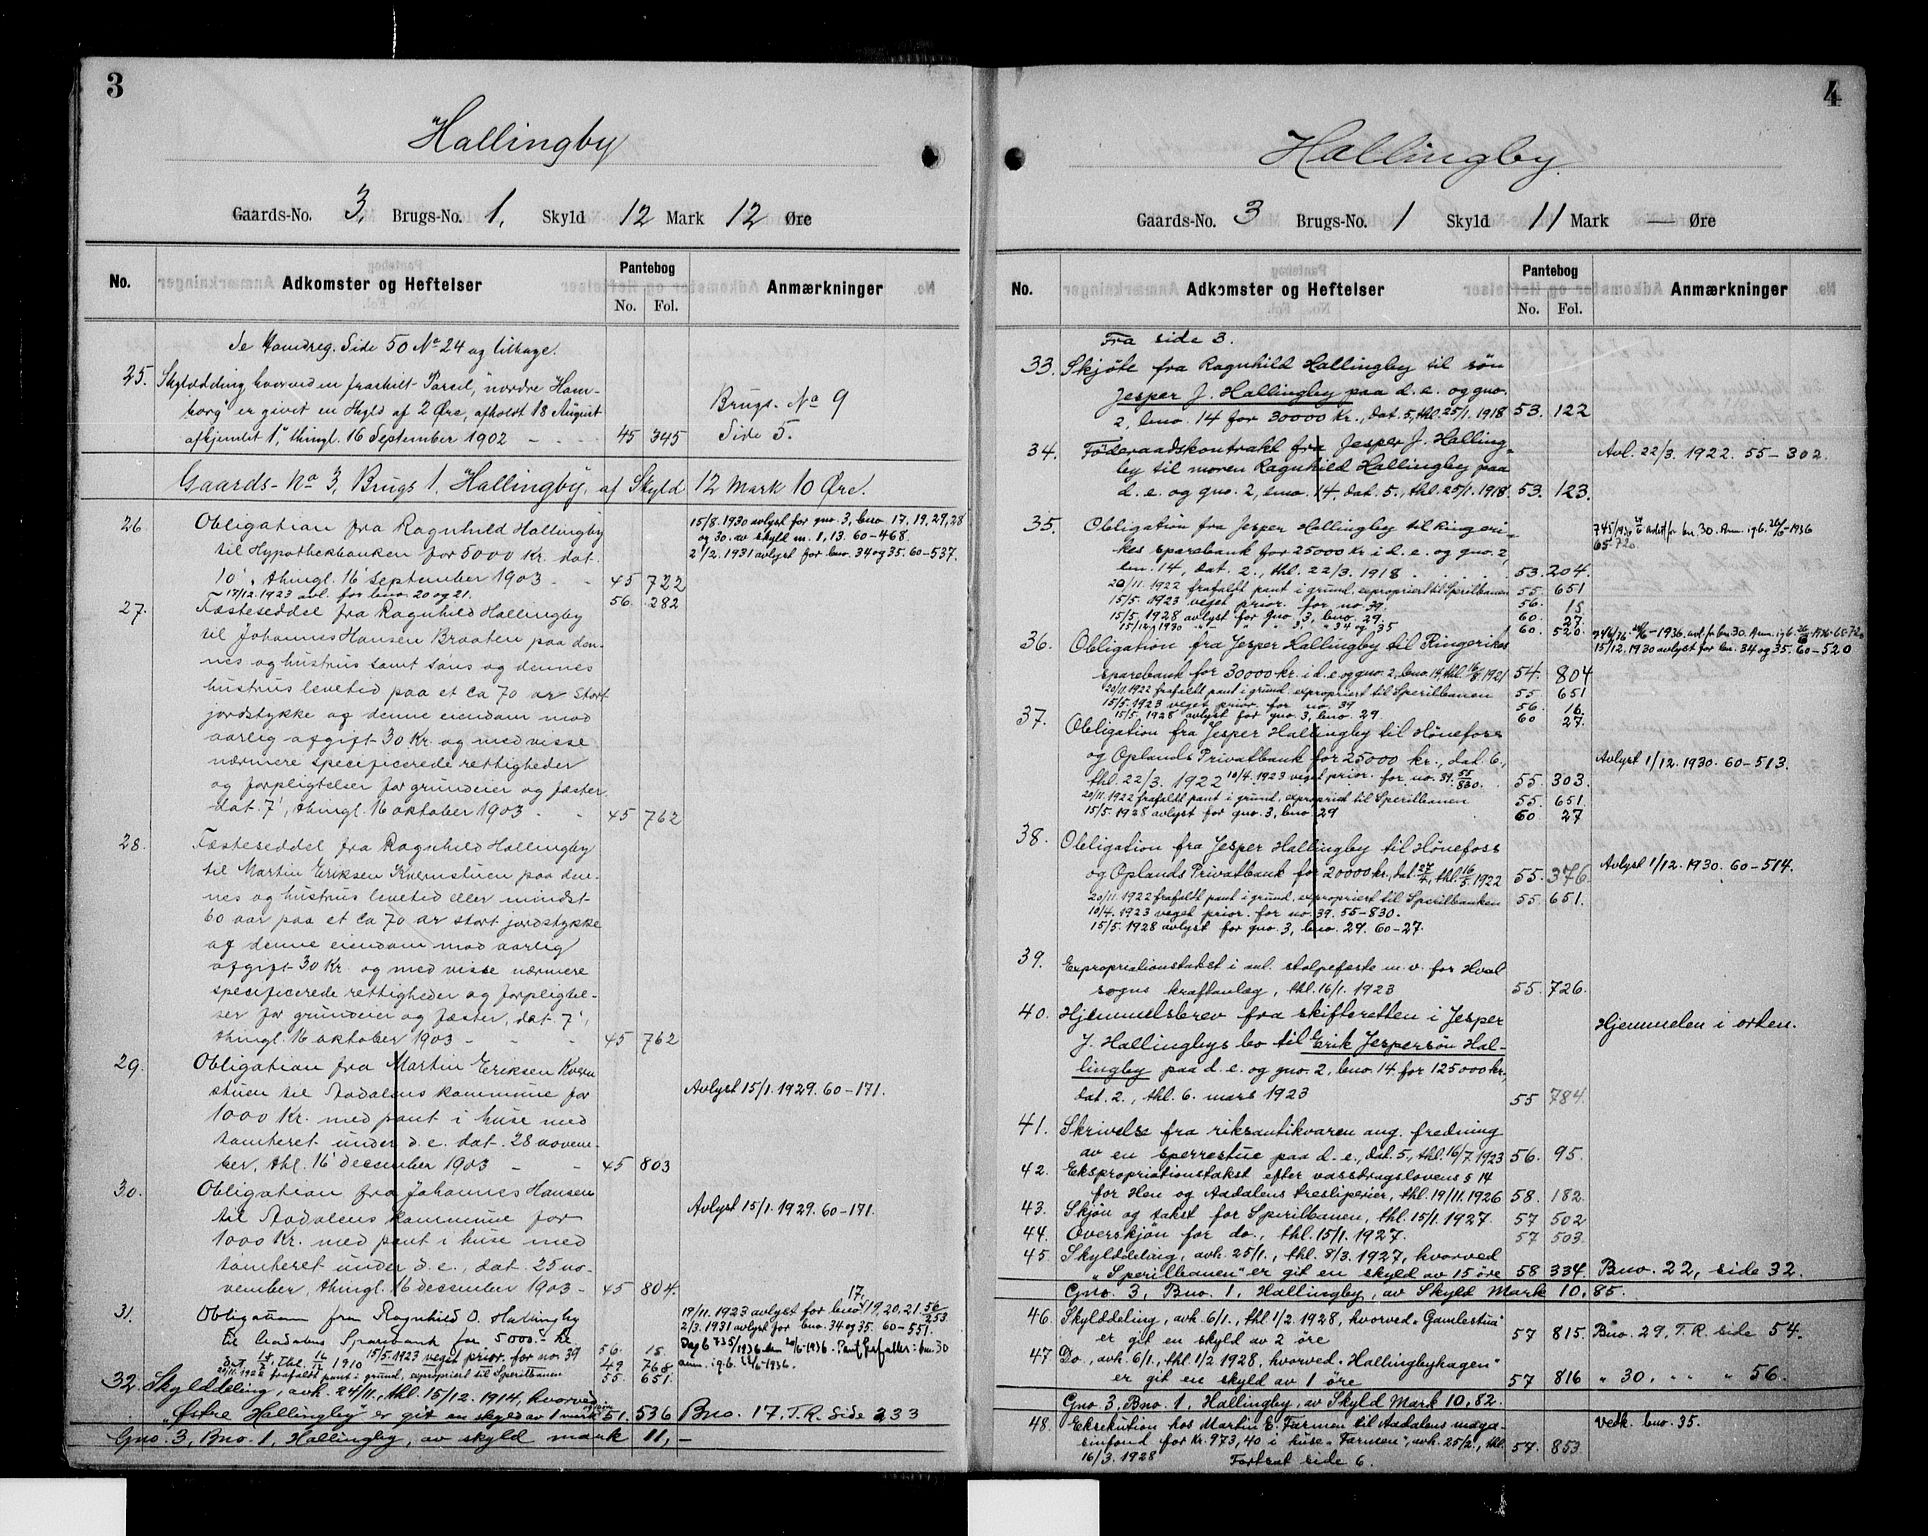 3
Hallingby
Gaards-No. 3, Brugs-No. 1, Skyld 12 Mark 12 Øre
No. Adkomster og Heftelser Pantebog No. Fol. Anmærkninger
Side 50 No 24 og tilbage.
25. Skylddeling hvorved en fraskilt Parcel, "nordre Ham-
borg" er givet en Skyld af 2 Øre, afholdt 18 August
afhjemlet 1', thingl. 16 September 1902 - 45 345
Brugs- No 9
Side 5.
Gaards- No 3, Brugs 1, Hallingby, af Skyld 12 Mark 10 Øre.
26 Obligation fra Ragnhild Hallingby
til Hypothekbanken for 5000 Kr. dat.
10', thingl. 16' september 1903 - - 45 722
17/12.1923 avl. for bno. 20 og 21. 56. 282
15/8.1930 avlyst for gno. 3, bno 17, 19, 29, 28
og 30. av skyld m. 1,13. 60-468.
2/2.1931 avlyst for bno. 34 og 35. 60-537.
27. Fæsteseddel fra Ragnhild Hallingby
til Johannes Hansen Braaten paa den-
nes og hustrus samt søns og dennes
hustrus levetid paa et ca 70 ar stort
jordstykke og denne eiendom mod
aarlig afgift 30 Kr. og med visse
nærmere specificerede rettigheder
og forpligtelser for grundeier og fæster
dat. 7', thingl. 16 oktober 1903 - - 45 762
28. Fæsteseddel fra Ragnhild Hallingby
til Martin Eriksen Kvernstuen paa den-
nes og hustrus levetid eller mindst
60 aar paa et ca 70 ar stort jordstykke
af denne eiendom mod aarlig
afgift 30 Kr. og med visse nærmere
specificerede rettigheder og forpligtel-
ser for grundeier og fæster, dat. 7',
thingl. 16 oktober 1903 - - - 45 762
29. Obligation fra Martin Eriksen Kvern
stuen til Aadalens kommune for
1000 Kr. med pant i huse med
tomteret under d.e. dat. 28 novem-
ber, thl. 16' december 1903 - - 45 803
Avlyst 15/1.1929. 60-171.
30. Obligation fra Johannes Hansen
til Aadalens kommune for
1000 Kr. med pant i huse med
tomteret under d.e., dat. 25 no-
vember, thingl. 16 december 1903 - 45 804.
Avlyst 15/1.1929. 60-171.
31. Obligation fra Ragnhild O. Hallingby
til Aadalens Sparebank for 5000.- kr.
15/5.1923 veget prior. for no. 39 56. 15.
1910 49 768
20/11.1922 frafaldt pant i grund, expropriert til Sperilbanen 55. 651.
17.
19/11.1923 avlyst for bno 19, 20, 21. 56/253
2/3.1931 avlyst for bno. 34 og 35. 60-551.
32. Skylddeling, avh. 24/11., thl. 15/12.1914, hvorved
"Østre Hallingby" er git en skyld av 1 mark 51. 536 Bno. 17. T.R. Side 233
Gno. 3, Bno. 1, Hallingby, av skyld mark 11,-
4
Hallingby.
Gaards-No. 3 Brugs-No. 1 Skyld 11 Mark — Øre
No. Adkomster og Heftelser Pantebog No. Fol. Anmærkninger
Fra side 3.
33. Skjøte fra Ragnhild Hallingby til søn
Jesper J. Hallingby paa d.e. og gno.
2, bno. 14 for 30000 Kr., dat. 5, thl. 25/1.1918 53. 122
34. Føderaadskontrakt fra Jesper J. Halling-
by til moren Ragnhild Hallingby paa
d.e. og gno. 2, bno. 14, dat. 5., thl. 25/1.1918 53. 123.
Avl. 22/3.1922. 55-302.
35. Obligation fra Jesper Hallingby til Ringeri-
kes sparebank for 25000 kr i d.e. og gno. 2,
bn. 14, dat. 2., thl. 22/3.1918 53. 204.
20/11.1922 frafaldt pant i grund, expropriert til Sperilbanen 55. 651
15/5.1923 veget prior. for no 39. 56. 15
15/5.1928 avlyst for Gno. 3, bno. 29. 60. 27.
15/12.1930 " " " 3, " 34 og 35 60. 520
36. Obligation fra Jesper Hallingby til Ringerikes
sparebank for 30000 kr. i d.e. og gno. 2, bno. 14, thl. 16/8.1921 54. 804
20/11.1922 frafaldt pant i grund, expropriert til Sperilbanen 55. 651
15/5.1923 veget prior. for no. 39 56. 16.
15/5.1928 avlyst for gno. 3, bno. 29 60 27.
15/12.1930 avlyst for bn. 34 og 35. 60-520
37. Obligation fra Jesper Hallingby til Hønefoss
og Oplands Privatbank for 25000 kr., dat. 6,
thl. 22/3.1922 10/4.1923 veget prior. for no. 39. 55/830. 55. 303.
20/11.1922 frafaldt pant i grund, expropriert til Sperilbanen 55. 651.
15/5.1928 avlyst for gno. 3, bno. 29 60 27
Avlyst 1/12.1930. 60-513.
38. Obligation fra Jesper Hallingby til Hønefoss
og Oplands Privatbank for 20000 kr., dat. 27/4, thl. 16/5.1922 55. 376.
20/11.1922 frafaldt pant i grund, expropriert til Sperilbanken 55. 651.
10/4.1923 veget prior. for no 39. 55-830.
15/5.1928 avlyst for gno. 3, bno. 29. 60-27.
Avlyst 1/12.1930. 60-514.
39. Expropriationstakst i anl. stolpefæste m.v. for Hval
sogns kraftanlæg, thl. 16/1.1923 55. 726.
40. Hjemmelsbrev fra skifteretten i Jesper
J. Hallingbys bo til Erik Jespersøn Hal-
lingby paa d.e. og gno. 2, bno. 14 for 125000 kr,
dat. 2., thl. 6. mars 1923 55 784.
Hjemmelen i orden.
41. Skrivelse fra riksantikvaren ang. fredning
av en sperrestue paa d.e., dat. 5., thl. 16/7.1923 56. 95.
42. Ekspropriationstakst efter vassdragslovens § 14
for Hen og Aadalens tresliperier, thl. 19/11.1926 58. 182.
43. Skjøn og takst for Sperilbanen, thl. 15/1.1927. 57 502
44. Overskjøn for do., thl. 15/1.1927. 57 503.
45. Skylddeling, avh. 25/1., thl. 8/3.1927, hvorved
"Sperilbanen" er git en skyld av 15 øre 58 334. Bno. 22, side 32.
Gno. 3, Bno. 1, Hallingby, av Skyld Mark 10,85.
46. Skylddeling, avh. 6/1., thl. 1/2.1928, hvorved "Gamlestua"
er git en skyld av 2 øre 57 815. Bno. 29, T.R. side 54.
47 Do., avh. 6/1., thl. 1/2.1928, hvorved "Hallingbyhagen"
er git en skyld av 1 øre 57 816 " 30, " " " 56.
Gno 3, Bno. 1, Hallingby, av Skyld Mark 10,82.
48. Eksekution hos Martin E. Farmen til Aadalens maga-
sinfond for Kr. 973,40 i huse "Farmen", avh. 25/2., thl. 57. 853.
16/3.1928 Fortsat side 6.
Vedk. bno. 35.